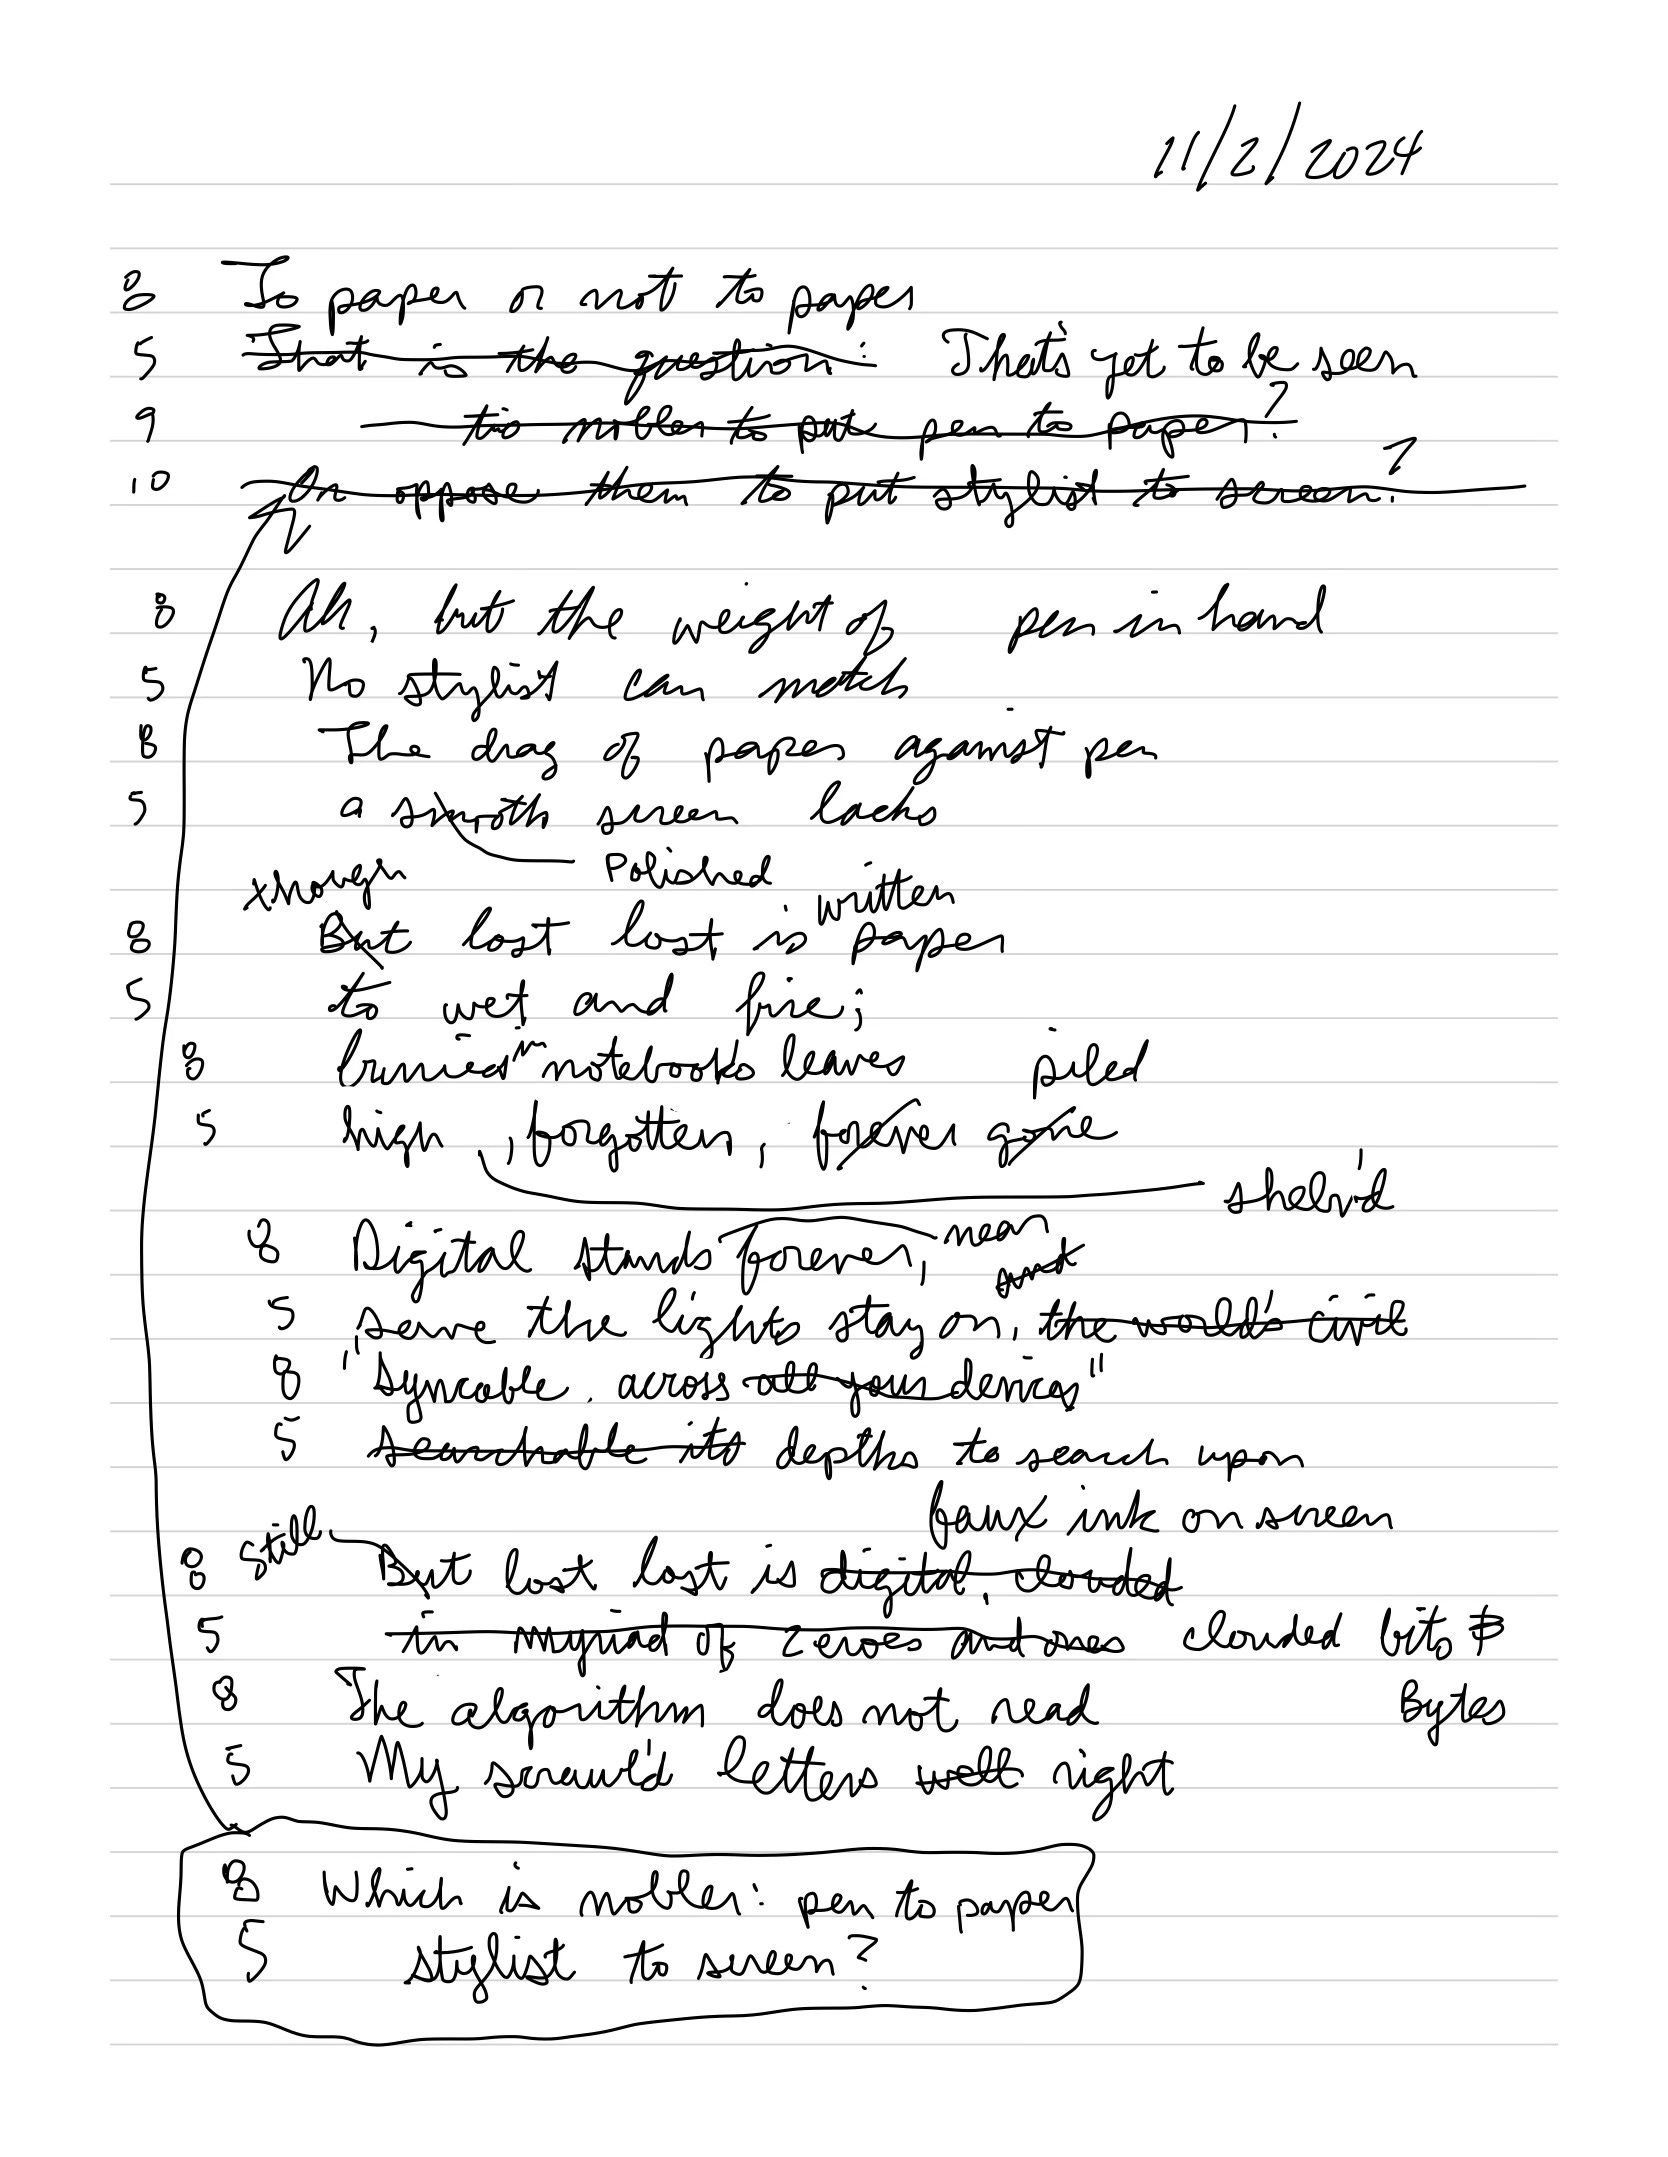 11/2/2024
8 To paper or not to paper
5 That is the question: That's yet to be seen
9 tis nobler to put pen to paper?
10 Or oppose them to put stylist to screen?
8 Ah, but the weight of pen in hand
5 No stylist can match
8 The drag of paper against pen
5 a smooth screen lacks
Polished
though written
8 But lost lost is paper
5 to wet and fire;
8 buried in notebooks leaves piled
5 high, forgotten, forever gone
shelv'd
8 Digital stands forever, near
and
5 serve the lights stay on, the world's civil
8 "Syncable across all your devices"
5 searchable its depths to search upon
faux ink on screen
8 Still But lost lost is digital, clouded
5 in myriad of zeroes and ones clouded bits &
8 The algorithm does not read Bytes
5 My scrawl'd letters well right
8 Which is nobler: pen to paper
5 stylist to screen?